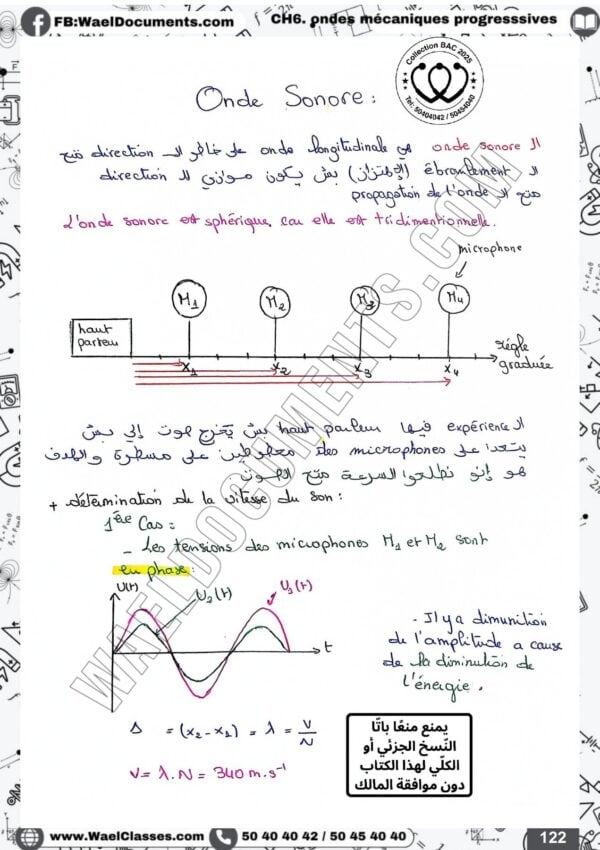 FB:WaelDocuments.com
CH6. ondes mécaniques progresssives
Collection BAC 2025
Tel: 50404042 / 50454040
Onde Sonore :
الـ onde sonore هي onde longitudinale على خاطر الـ direction متع
الـ ébranlement (الإهتزاز) بش يكون موازي للـ direction
متع الـ propagation de l'onde
L'onde sonore est sphérique, car elle est tridimentionnelle.
microphone
M1 M2 M3 M4
haut
parleur
x1 x2 x3 x4
règle
graduée
الـ expérience فيها haut parleur بش يخرج صوت إلي بش
يتعدا على des microphones محطوطين على مسطرة والهدف
هو إنو نطلعوا السرعة متع الصوت
+ détermination de la vitesse du son :
1ère Cas :
- Les tensions des microphones M1 et M2 sont
en phase :
U(t)
U2(t)
U1(t)
t
- Il y a dimunition
de l'amplitude a cause
de la diminution de
l'énergie.
Δ = (x2-x1) = λ = V/N
V = λ.N = 340 m.s-1
يمنع منعًا باتًا
النّسخ الجزئي أو
الكلّي لهذا الكتاب
دون موافقة المالك
WAELDOCUMENTS.COM
www.WaelClasses.com
50 40 40 42 / 50 45 40 40
122